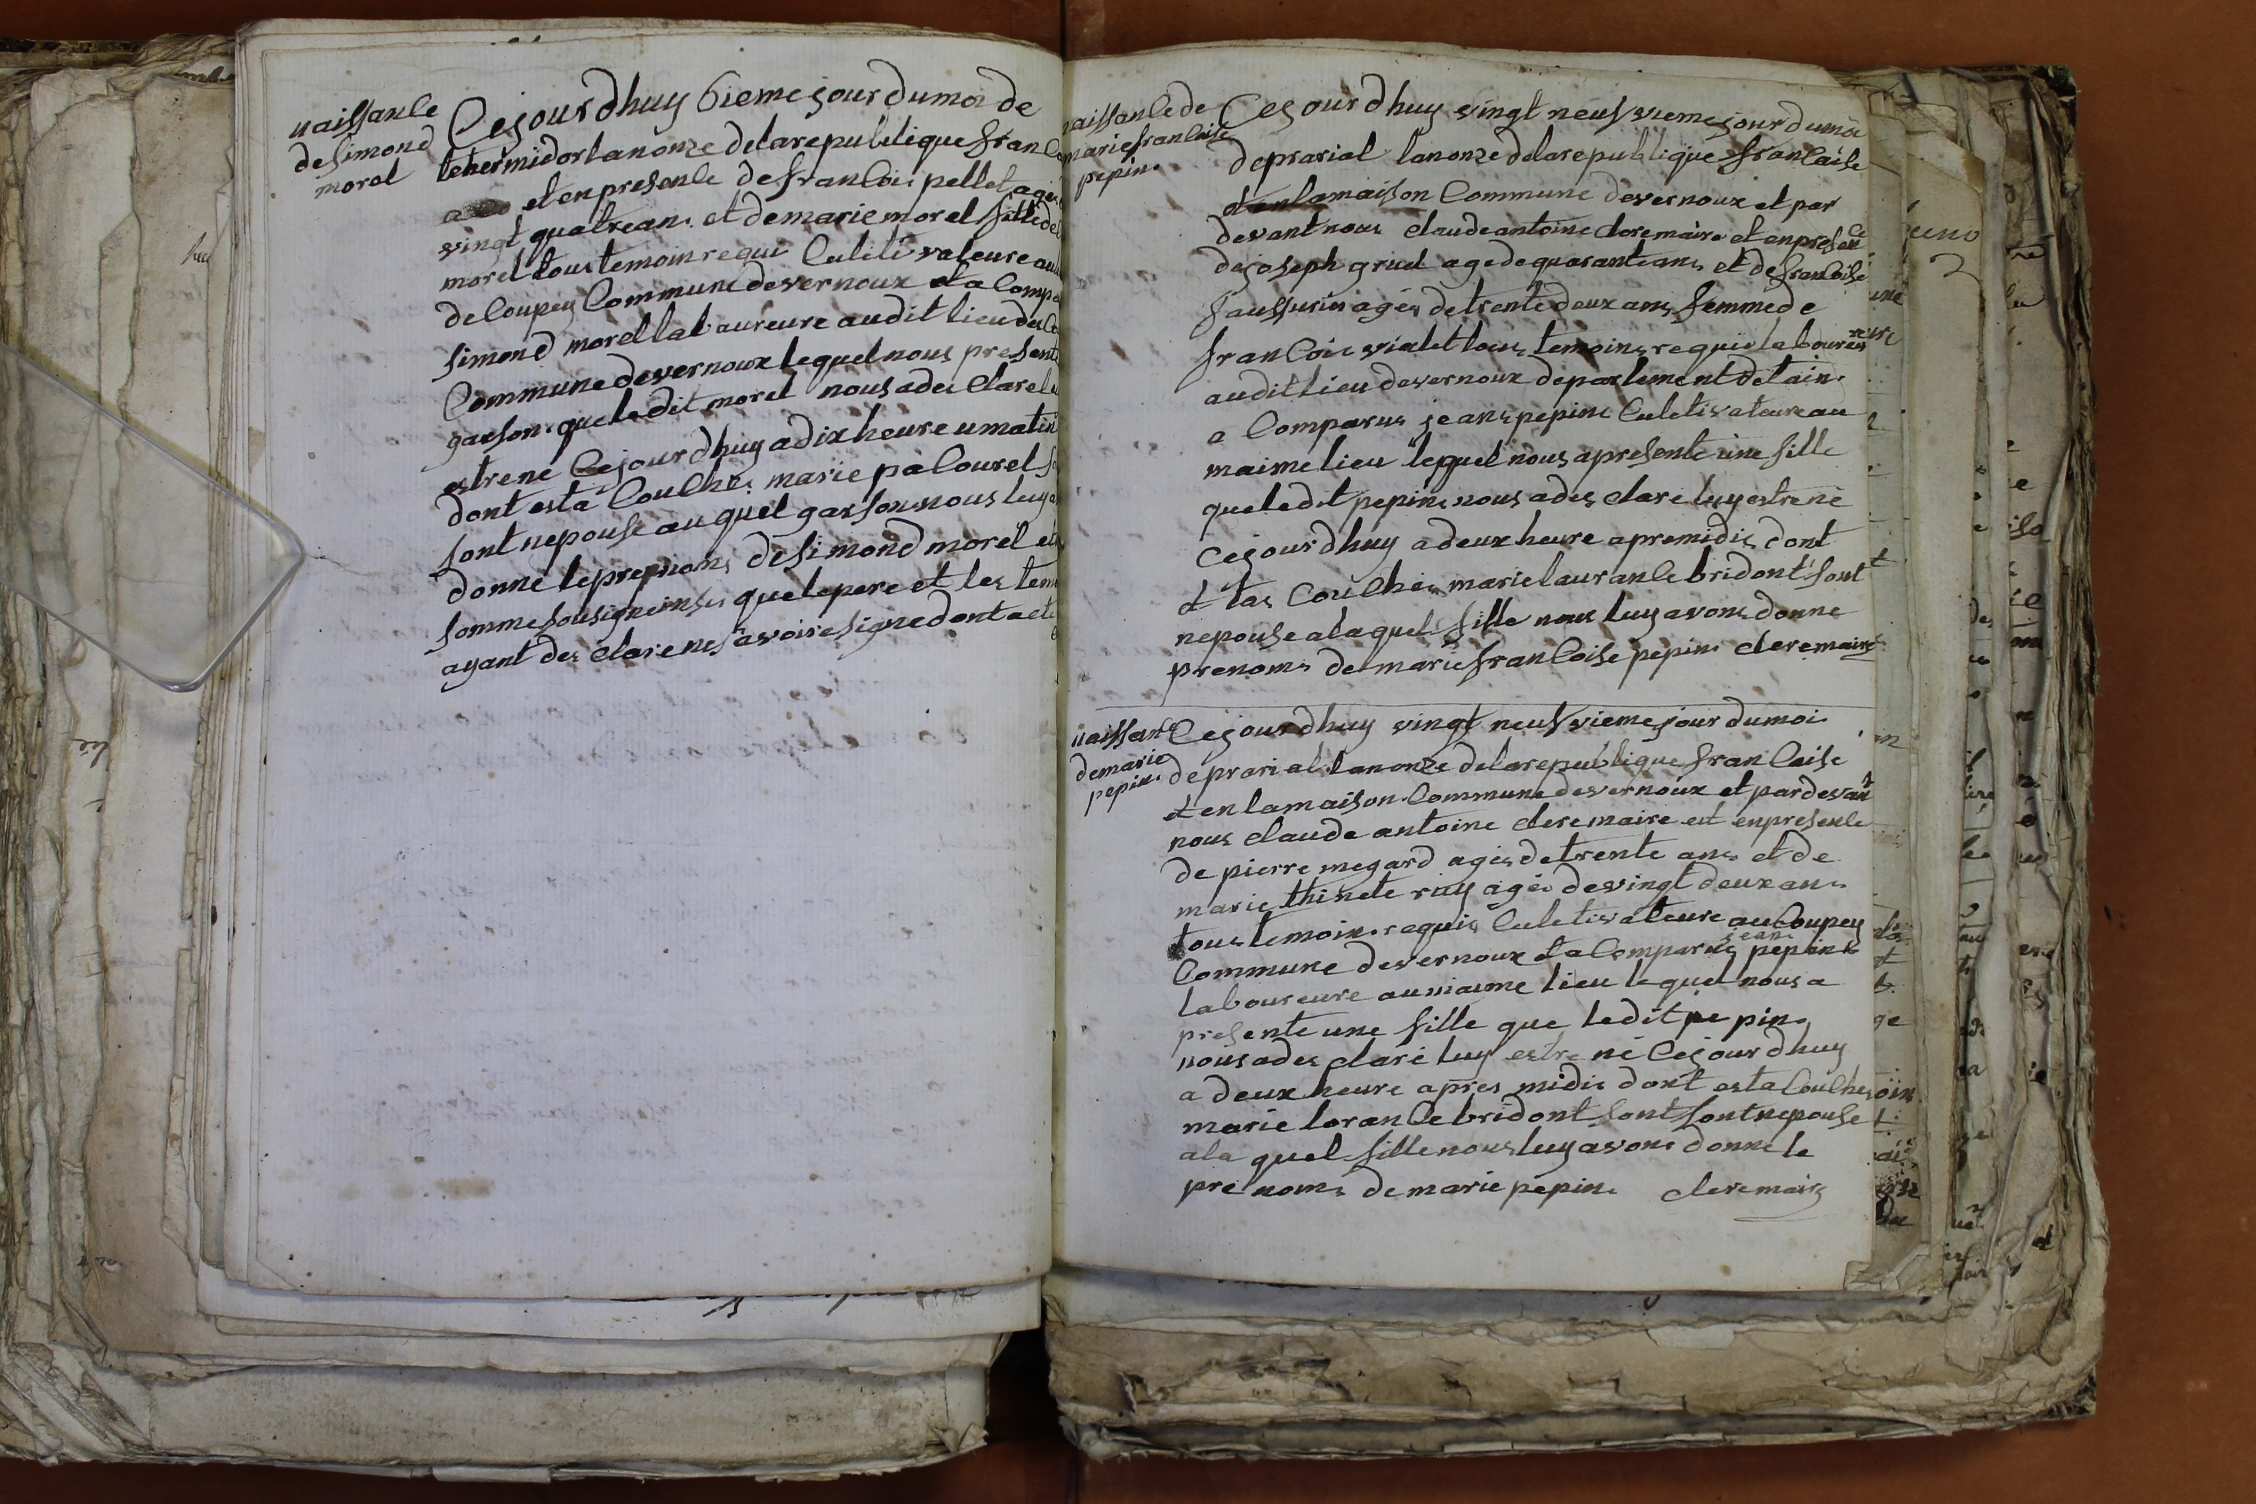 naissance
de simond
morel
Cejourdhuy 6ieme jour dumoi de
tehermidor lanonze delarepublique franc
a et en presence de francois pellet agé
vingt quatre ans et demarie morel fille de
morel tous temoin requi Culeti valeure au
de Coupey Commune devernoux et a Compa
simond morel laboureure audit lieu des Co
Commune devernoux lequel nous presente
garson que ledit morel nous a des clare lu
estre né Cejourdhuy adix heure umatin
dont esta Couches marie pacourel
sont nepouse auquel garson nous luy a
donné leprenoms desimond morel et
somme sousigne insi que lepere et les tem
ayant des clare ne savoire signe dont acte
naissance de
marie francoise
pepin
Cejourdhuy vingt neuf vieme jour dumoi
deprarial lanonze delarepublique francaise
et en lamaison Commune devernoux et par
devant nous claude antoine clere maire et en presence
dejoseph gruel age de quarante ans et de francoise
faussurier agée detrente deux ans femme de
francois vialet tous temoins requis laboureure
audit lieu devernoux departement delain
a Comparus jean pepin Culetivateure au
maime lieu lequel nous a presenté une fille
que ledit pepin nous a des claré luy estre né
cejourdhuy a deux heure apremidis dont
et tas Couches marie laurance bridont sont
nepouse a laquel fille nous luy avons donné
prenoms de marie francoise pepin clere maire
naissance
demarie
pepin
Cejourdhuy vingt neuf vieme jour dumoi
deprarial lanonze delarepublique francaise
et en lamaison Commune devernoux et pardevant
nous claude antoine clere maire eet enpresence
de pierre megard agés detrente ans et de
marie thinete ruy agée devingt deux ans
tous temoin requis Culetivateure au Coupey
Commune devernoux et a Comparus jean pepin
laboureure aumaime lieu lequel nous a
presenté une fille que ledit pepin
nous a des claré luy estre né Cejourdhuy
a deux heure apres midis dont esta Couches
marie lorance bridont sont sont nepouse
ala quel fille nous luy avons donné le
prenoms de marie pepin clere maire